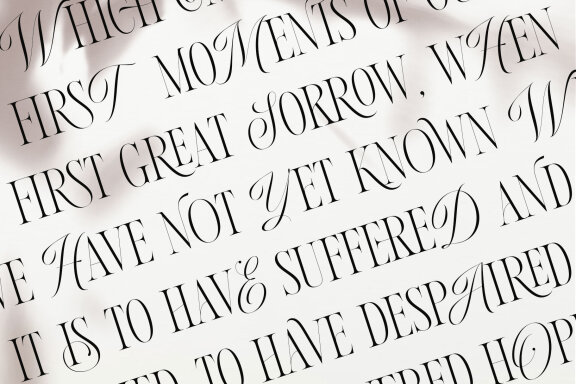 WHICH
FIRST MOMENTS OF
FIRST GREAT SORROW, WHEN
WE HAVE NOT YET KNOWN W
IT IS TO HAVE SUFFERED AND
TO HAVE DESPAIRED